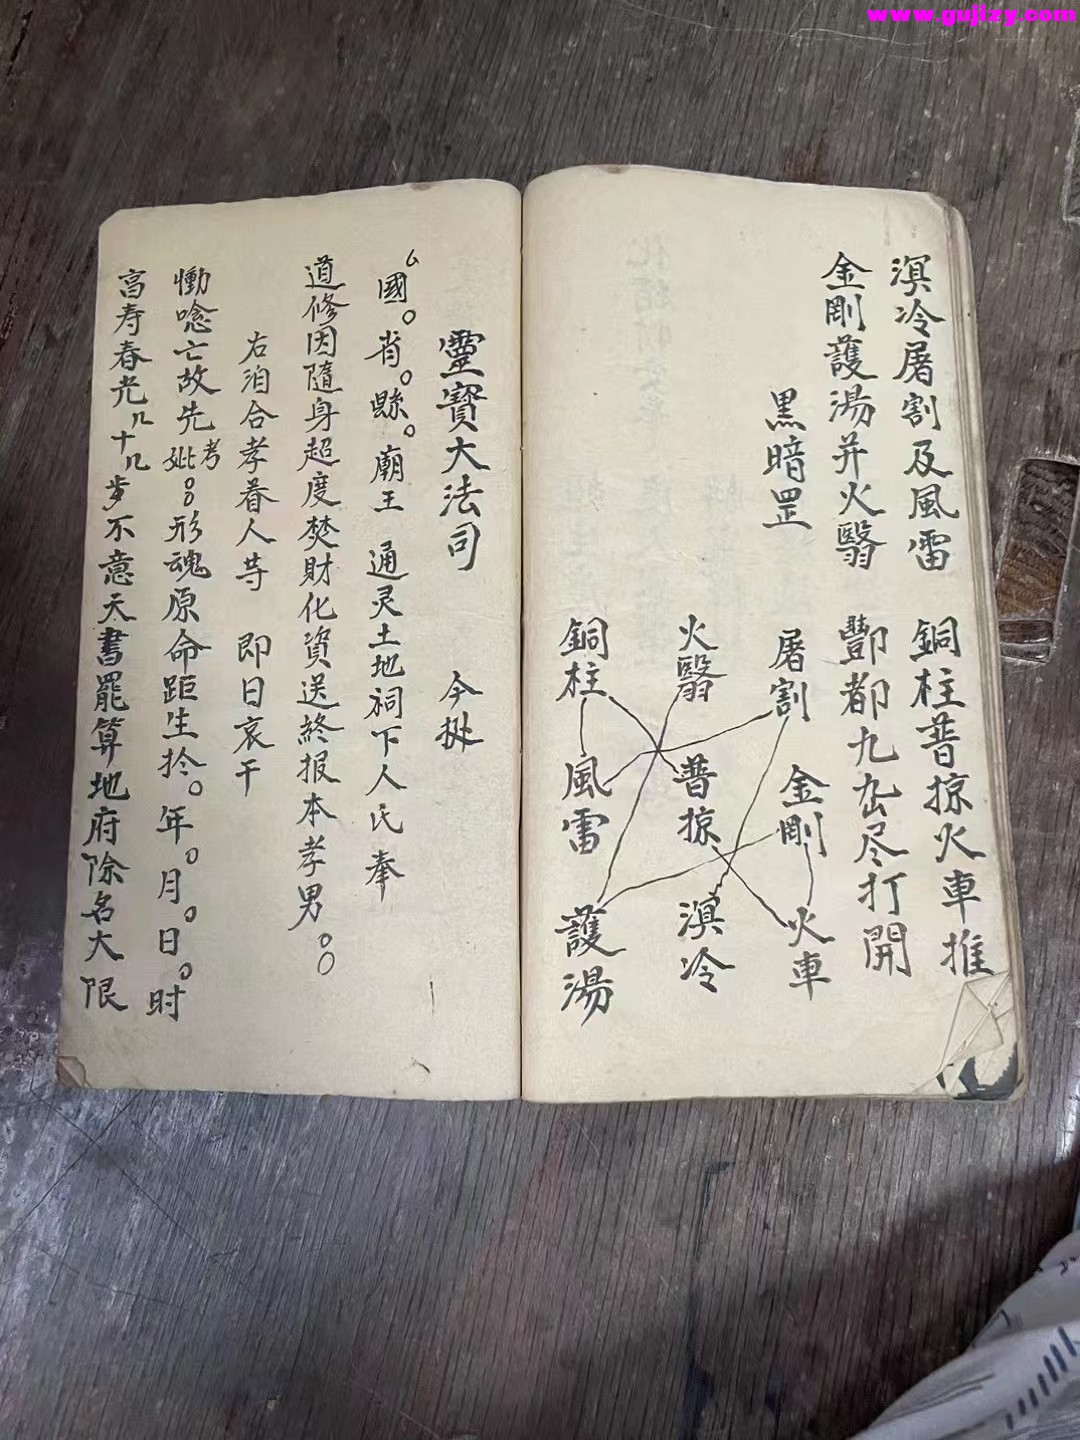 www.gujizy.com
溟冷屠割及風雷 銅柱普掠火車推
金剛護湯并火翳 酆都九幽尽打開
黑暗罡
屠割 金剛 火車
火翳 普掠 溟冷
銅柱 風雷 護湯
靈寶大法司 今据
厶國。省。縣。廟王 通灵土地祠下人氏奉
道修因隨身超度焚財化資送終报本孝男。○○
右洎合孝眷人等 即日哀干
慟唸亡故先考妣○○形魂原命距生扵。年。月。日。时
高寿春光几十几歩不意天書罷算地府除名大限